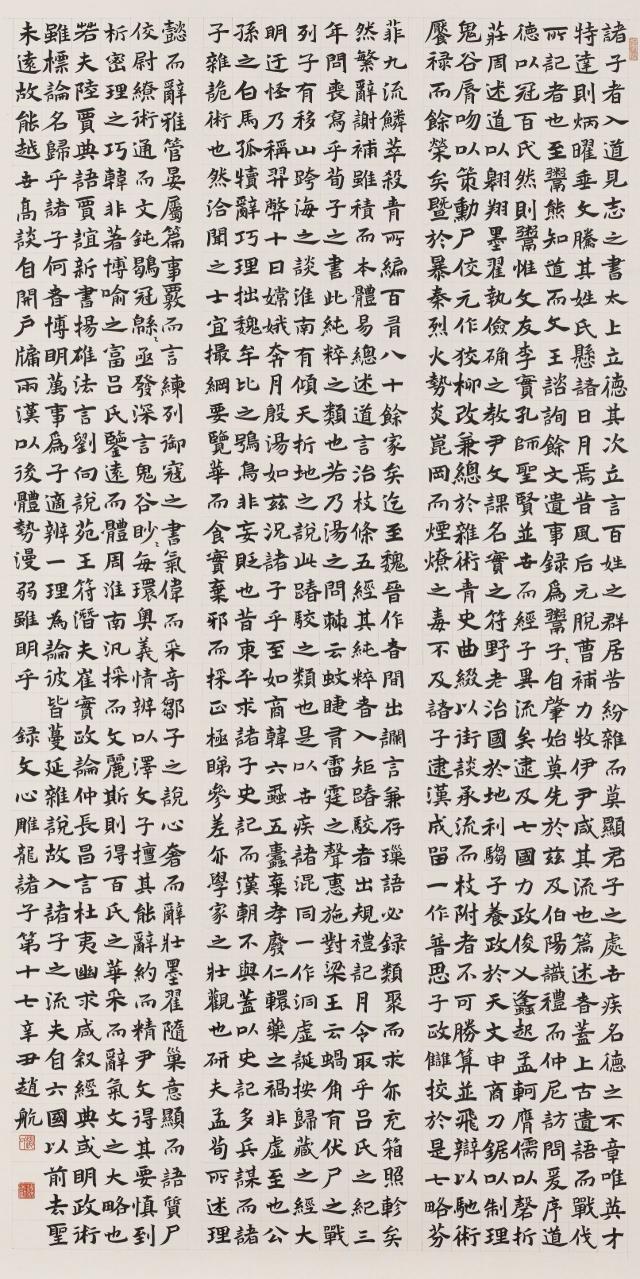 諸子者入道見志之書太上立德其次立言百姓之群居苦紛雜而莫顯君子之處世疾名德之不章唯英才
特達則炳曜垂文騰其姓氏懸諸日月焉昔風后元脫曹補力牧伊尹咸其流也篇述者蓋上古遺語而戰伐
所記者也至鬻熊知道而文王諮詢餘文遺事録為鬻子〻自肇始莫先於茲及伯陽識禮而仲尼訪問爰序道
德以冠百氏然則鬻惟文友李實孔師聖賢並世而經子異流矣逮及七國力政俊乂蠭起孟軻膺儒以磬折
莊周述道以翱翔墨翟執儉确之教尹文課名實之符野老治國於地利騶子養政於天文申商刀鋸以制理
鬼谷脣吻以策勳尸佼元作狡柳改兼總於雜術青史曲綴以街談承流而枝附者不可勝算並飛辯以馳術
饜禄而餘榮矣暨於暴秦烈火勢炎崑岡而煙燎之毒不及諸子逮漢成留一作普思子政讎校於是七略芬
菲九流鱗萃殺青所編百有八十餘家矣迄至魏晉作者間出讕言兼存璅語必録類聚而求亦充箱照軫矣
然繁辭謝補雖積而本體易總述道言治枝條五經其純粹者入矩踳駮者出規禮記月令取乎吕氏之紀三
年問喪寫乎荀子之書此純粹之類也若乃湯之問棘云蚊睫有雷霆之聲惠施對梁王云蝸角有伏尸之戰
列子有移山跨海之談淮南有傾天折地之說此踳駮之類也是以世疾諸混同一作洞虛誕按歸藏之經大
明迂怪乃稱羿弊十日嫦娥奔月殷湯如茲況諸子乎至如商韓六蝨五蠹棄孝廢仁轘藥之禍非虛至也公
孫之白馬孤犢辭巧理拙魏牟比之鴞鳥非妄貶也昔東平求諸子史記而漢朝不與蓋以史記多兵謀而諸
子雜詭術也然洽聞之士宜撮綱要覽華而食實棄邪而採正極睇參差亦學家之壯觀也研夫孟荀所述理
懿而辭雅管晏屬篇事覈而言練列御寇之書氣偉而采奇鄒子之說心奢而辭壯墨翟隨巢意顯而語質尸
佼尉繚術通而文鈍鶡冠緜〻亟發深言鬼谷眇〻每環奧義情辨以澤文子擅其能辭約而精尹文得其要慎到
析密理之巧韓非著博喻之富吕氏鑒遠而體周淮南汎採而文麗斯則得百氏之華采而辭氣文之大略也
若夫陸賈典語賈誼新書揚雄法言劉向說苑王符潛夫崔實政論仲長昌言杜夷幽求咸叙經典或明政術
雖標論名歸乎諸子何者博明萬事為子適辨一理為論彼皆蔓延雜說故入諸子之流夫自六國以前去聖
未遠故能越世高談自開戶牖兩漢以後體勢漫弱雖明乎 録文心雕龍諸子第十七辛丑趙航